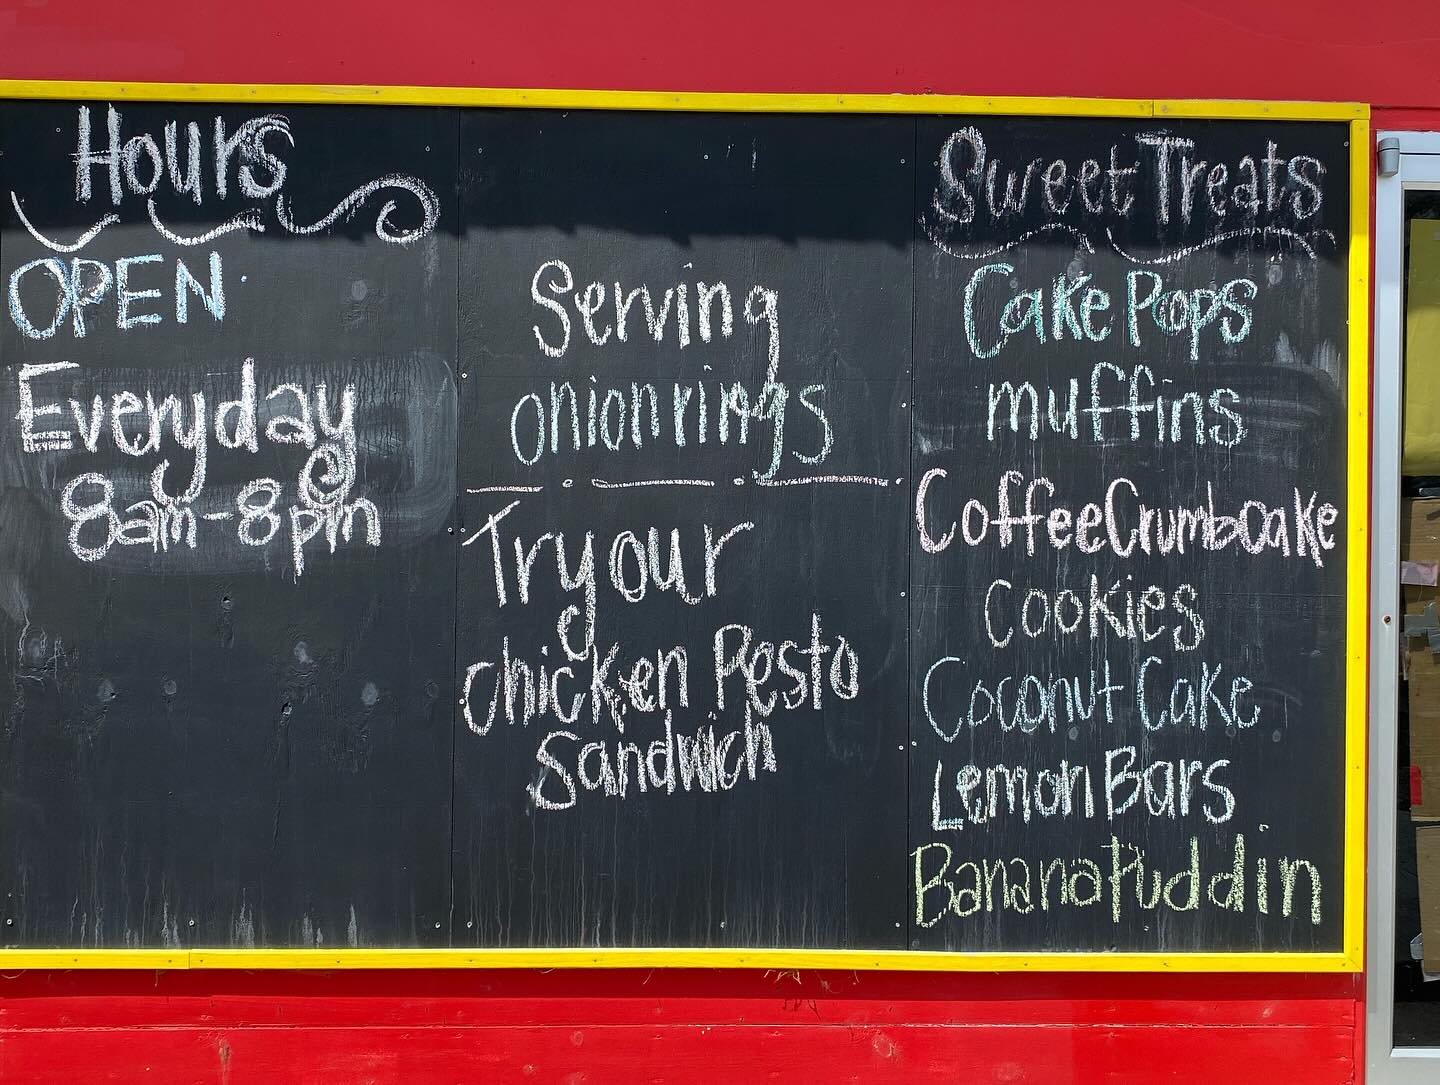 Hours
OPEN
Everyday
8am-8pm
Serving
onion rings
Try our
Chicken Pesto
Sandwich
Sweet Treats
Cake Pops
muffins
Coffee Crumbcake
Cookies
Coconut Cake
Lemon Bars
Banana Puddin